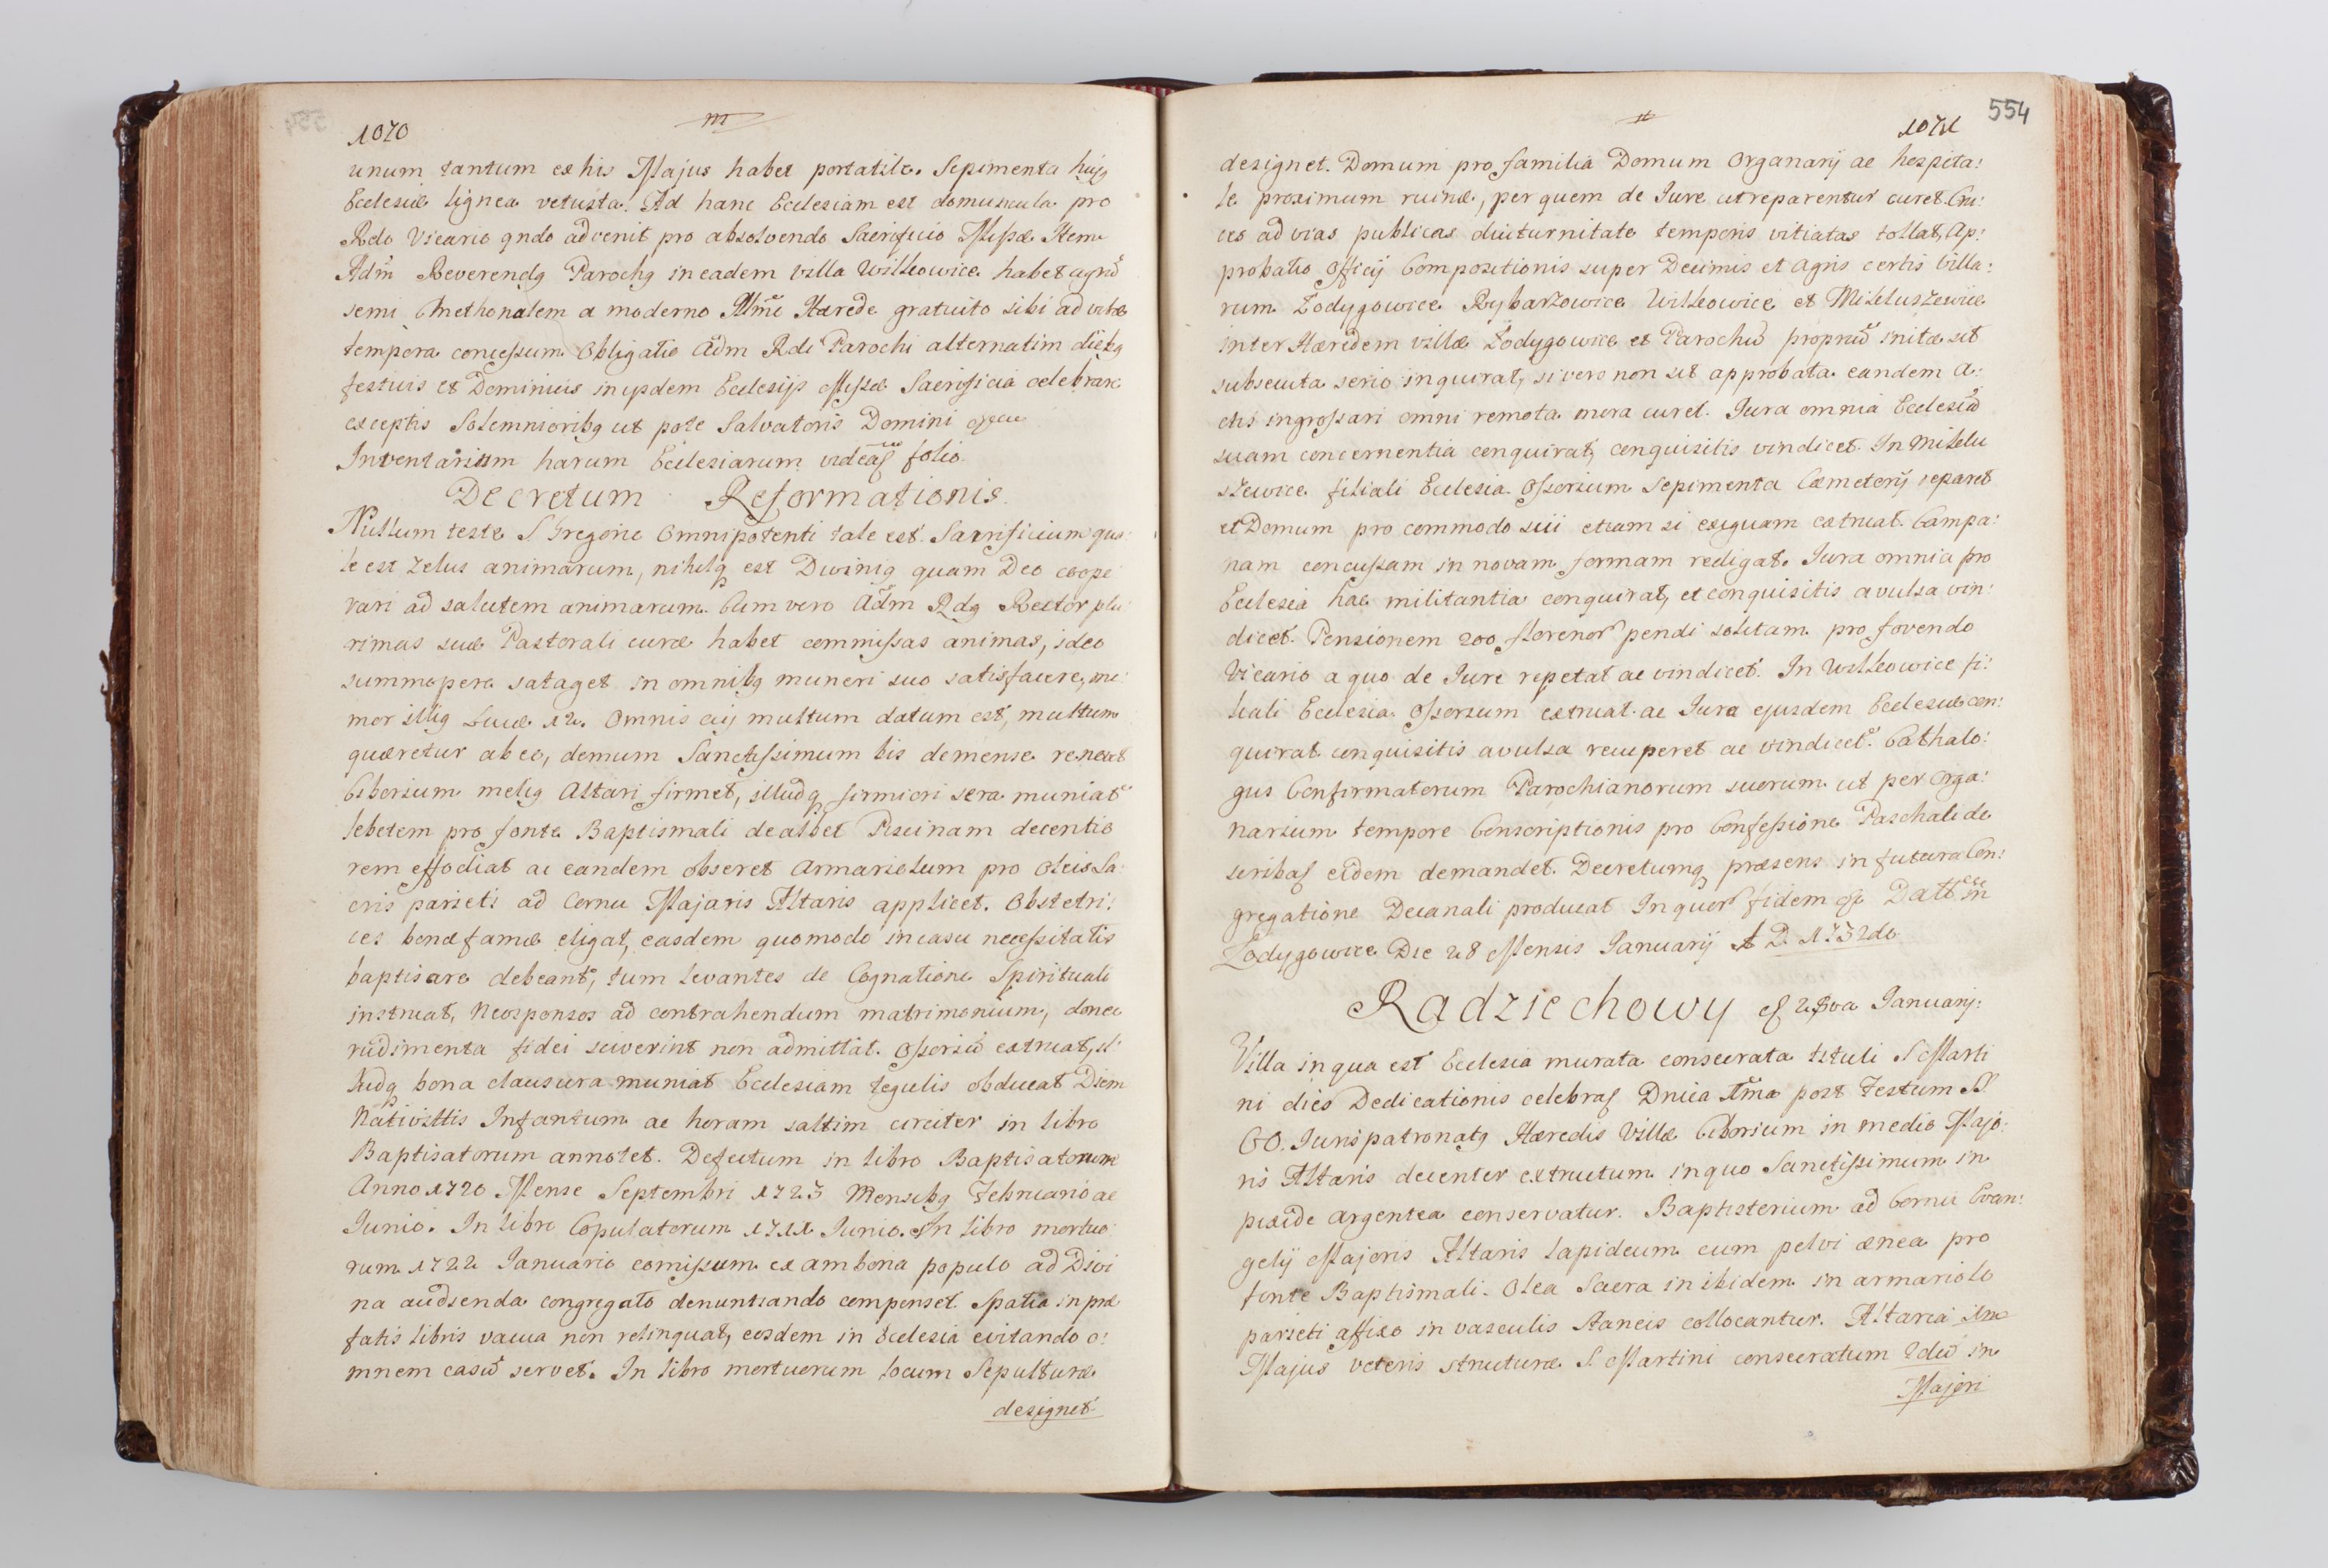 1070
unum tantum ex his Majus habet portatile. Sepimenta hujq
Ecclesiæ lignea vetusta. Ad hanc Ecclesiam est domuncula pro
Rdo Vicario qndo advenit pro absolvendo Sacrificio Missæ Item
Adm Reverendq Parochq in eadem villa Wilkowice habet agrū
semi Cmethonalem a moderno Illmē Hærede gratuito sibi ad vitæ
tempora concessum. Obligatio Adm Rdi Parochi alternatim diebq
festivis et Dominicis in ijsdem Ecclesijs Missæ Sacrificia celebrare
exceptis Solemnioribq ut pote Salvatoris Domini
Inventarium harum Ecclesiarum videas folio
Decretum Reformationis.
Nullum teste S Gregorie Omnipotenti tale est Sacrificium qua:
le est Zelus animarum, nihilq est Divinig quam Deo coope
rari ad salutem animarum. Cum vero Adm Rdq Rector plu
rimas suæ Pastorali curæ habet commissas animas, ideo
summopere sataget in omnibq muneri suo satisfacere, me:
mor illig Lucæ 12. Omnis cuj multum datum est, multum
quæretur ab eo, demum Sanctissimum bis demense renovet
Ciborium meliq Altari firmet, illudq firmiori sera muniat
lebetem pro fonte Baptismali dealbet Piscinam decentio
rem effodiat ac eandem obseret Armariolum pro Oleis Sa:
cris parieti ad Cornu Majoris Altaris applicet. Obstetri:
ces bonæ famæ eligat, easdem quomodo in casu necessitatis
baptisare debeant, tum levantes de Cognatione Spirituali
instruat, Neosponsos ad contrahendum matrimonium, donec
rudimenta fidei sciverint non admittat. Ossoriū extruat, il:
ludq bona clausura muniat Ecclesiam tegulis obducat Diem
Nativittis Infantum ac horam saltim circiter in libro
Baptisatorum annotet. Defectum in libro Baptisatorum
Anno 1720 Mense Septembri 1723 Mensibq Februario ac
Junio. In libro Copulatorum 1721 Junio. In libro mortuo
rum 1722 Januario comissum ex ambona populo ad Divi
na audienda congregato denuntiando compenset. Spatia in præ
fatis libris vacua non relinquat, eosdem in Ecclesia evitando o:
mnem casū servet. In libro mortuorum locum Sepulturæ
designet
554
1071
designet. Domum pro familia Domum Organarij ac hospita:
le proximum ruinæ, per quem de Jure ut reparentur curet. Cru:
ces ad vias publicas diuturnitate temporis vitiatas tollat, Ap:
probatio Officij Compositionis super Decimis et Agris certis Villa:
rum Łodygowice Rybarzowice Wilkowice et Mikluszewice
inter Hæredem villæ Łodygowice et Parochū propriū initæ sit
subsecuta serio inquirat, si vero non sit approbata eandem A:
ctis ingrossari omni remota mora curet. Jura omnia Ecclesiā
suam concernentia conquirat, conquisitis vindicet. In Miklu
szewice filiali Ecclesia Ossorium Sepimenta Cæmeterij reparet
et Domum pro commodo sui etiam si exiguam extruat. Campa:
nam concussam in novam formam redigat. Jura omnia pro
Ecclesia hac militantia conquirat, et conquisitis avulsa vin:
dicet. Pensionem 200 florenor pendi solitam pro fovendo
Vicario a quo de Jure repetat ac vindicet. In Wilkowice fi:
liali Ecclesia Ossorium extruat ac Jura ejusdem Ecclesiæ con:
quirat conquisitis avulsa recuperet ac vindicet. Cathalo:
gus Confirmatorum Parochianorum suorum ut per Orga:
narium tempore Conscriptionis pro Confessione Paschali de
scribas eidem demandet. Decretumq præsens in futura Con:
gregatione Decanali producat In quor fidem Datt in
Łodygowice Die 28 Mensis Januarij A D. 1732do
Radziechowy 28va Januarij:
Villa in qua est Ecclesia murata consecrata tituli S Marti
ni dies Dedicationis celebras Dnica Ima post Festum SS
OO. Juris patronatq Hæredis Villæ Ciborium in medio Majo:
ris Altaris decenter extructum in quo Sanctissimum in
pixide argentea conservatur. Baptisterium ad Cornu Evan:
gelij Majoris Altaris lapideum cum pelvi ænea pro
fonte Baptismali. Olea Sacra in ibidem in armariolo
parieti affixo in vasculis staneis collocantur. Altaria
Majus veteris structuræ S. Martini consecratum 2dū in
Majori